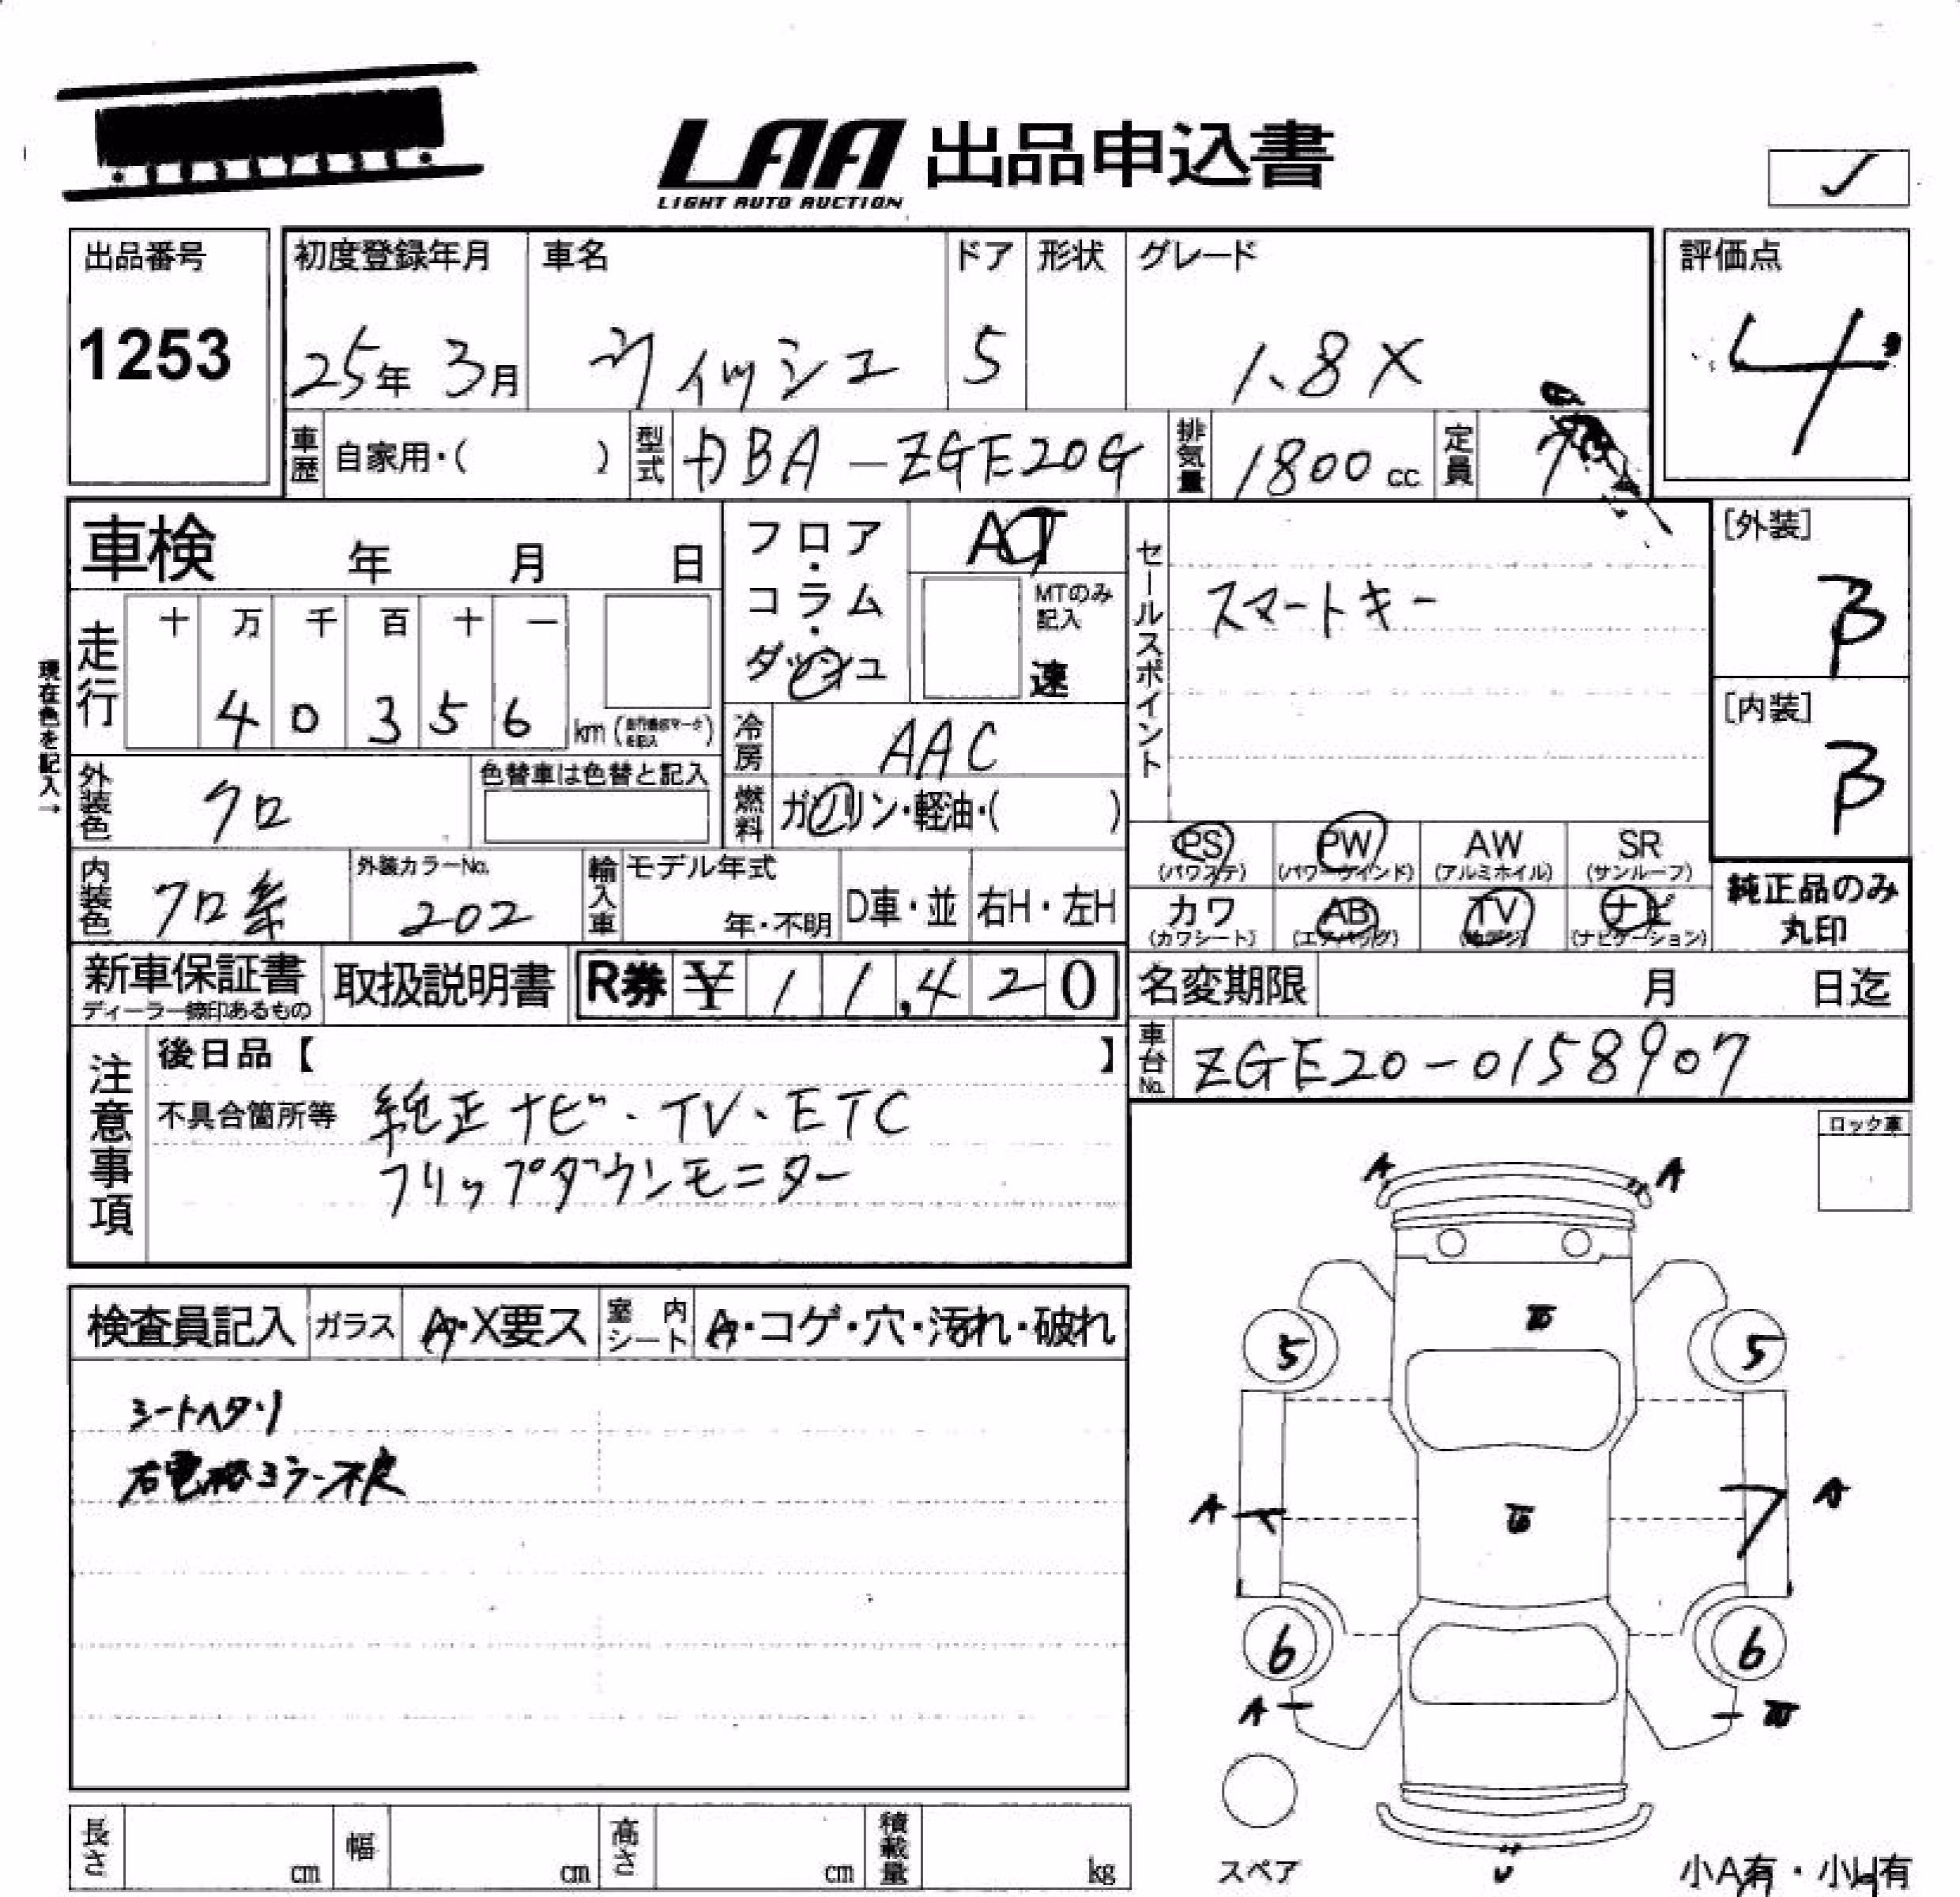 LAA 出品申込書
LIGHT AUTO AUCTION
出品番号
1253
初度登録年月
25年 3月
車名
ウィッシュ
ドア
5
形状
グレード
1.8X
評価点
4
車歴
自家用・( )
型式
DBA-ZGE20G
排気量
1800cc
定員
7
車検 年 月 日
フロア・コラム・ダッシュ
AT
MTのみ記入
速
セールスポイント
スマートキー
[外装]
B
[内装]
B
現在色を記入→
走行
十 万 千 百 十 一
4 0 3 5 6 km
冷房
AAC
外装色
クロ
色替車は色替と記入
燃料
ガソリン・軽油・( )
PS
(パワステ)
PW
(パワーウインド)
AW
(アルミホイル)
SR
(サンルーフ)
内装色
クロ系
外装カラーNo.
202
輸入車
モデル年式
年・不明
D車・並
右H・左H
カワ
(カワシート)
AB
(エアバッグ)
TV
ナビ
(ナビゲーション)
純正品のみ
丸印
新車保証書
取扱説明書
R券 ¥ 11,420
名変期限 月 日迄
車台No.
ZGE20-0158907
注意事項
後日品【 】
不具合箇所等 純正ナビ・TV・ETC
フリップダウンモニター
ロック車
検査員記入
ガラス
A・X要ス
室内シート
A・コゲ・穴・汚れ・破れ
シートヘタリ
右電格ミラー不良
A A
5 5
A A
6 6
A
スペア
小A有・小U有
長さ cm
幅 cm
高さ cm
積載量 kg